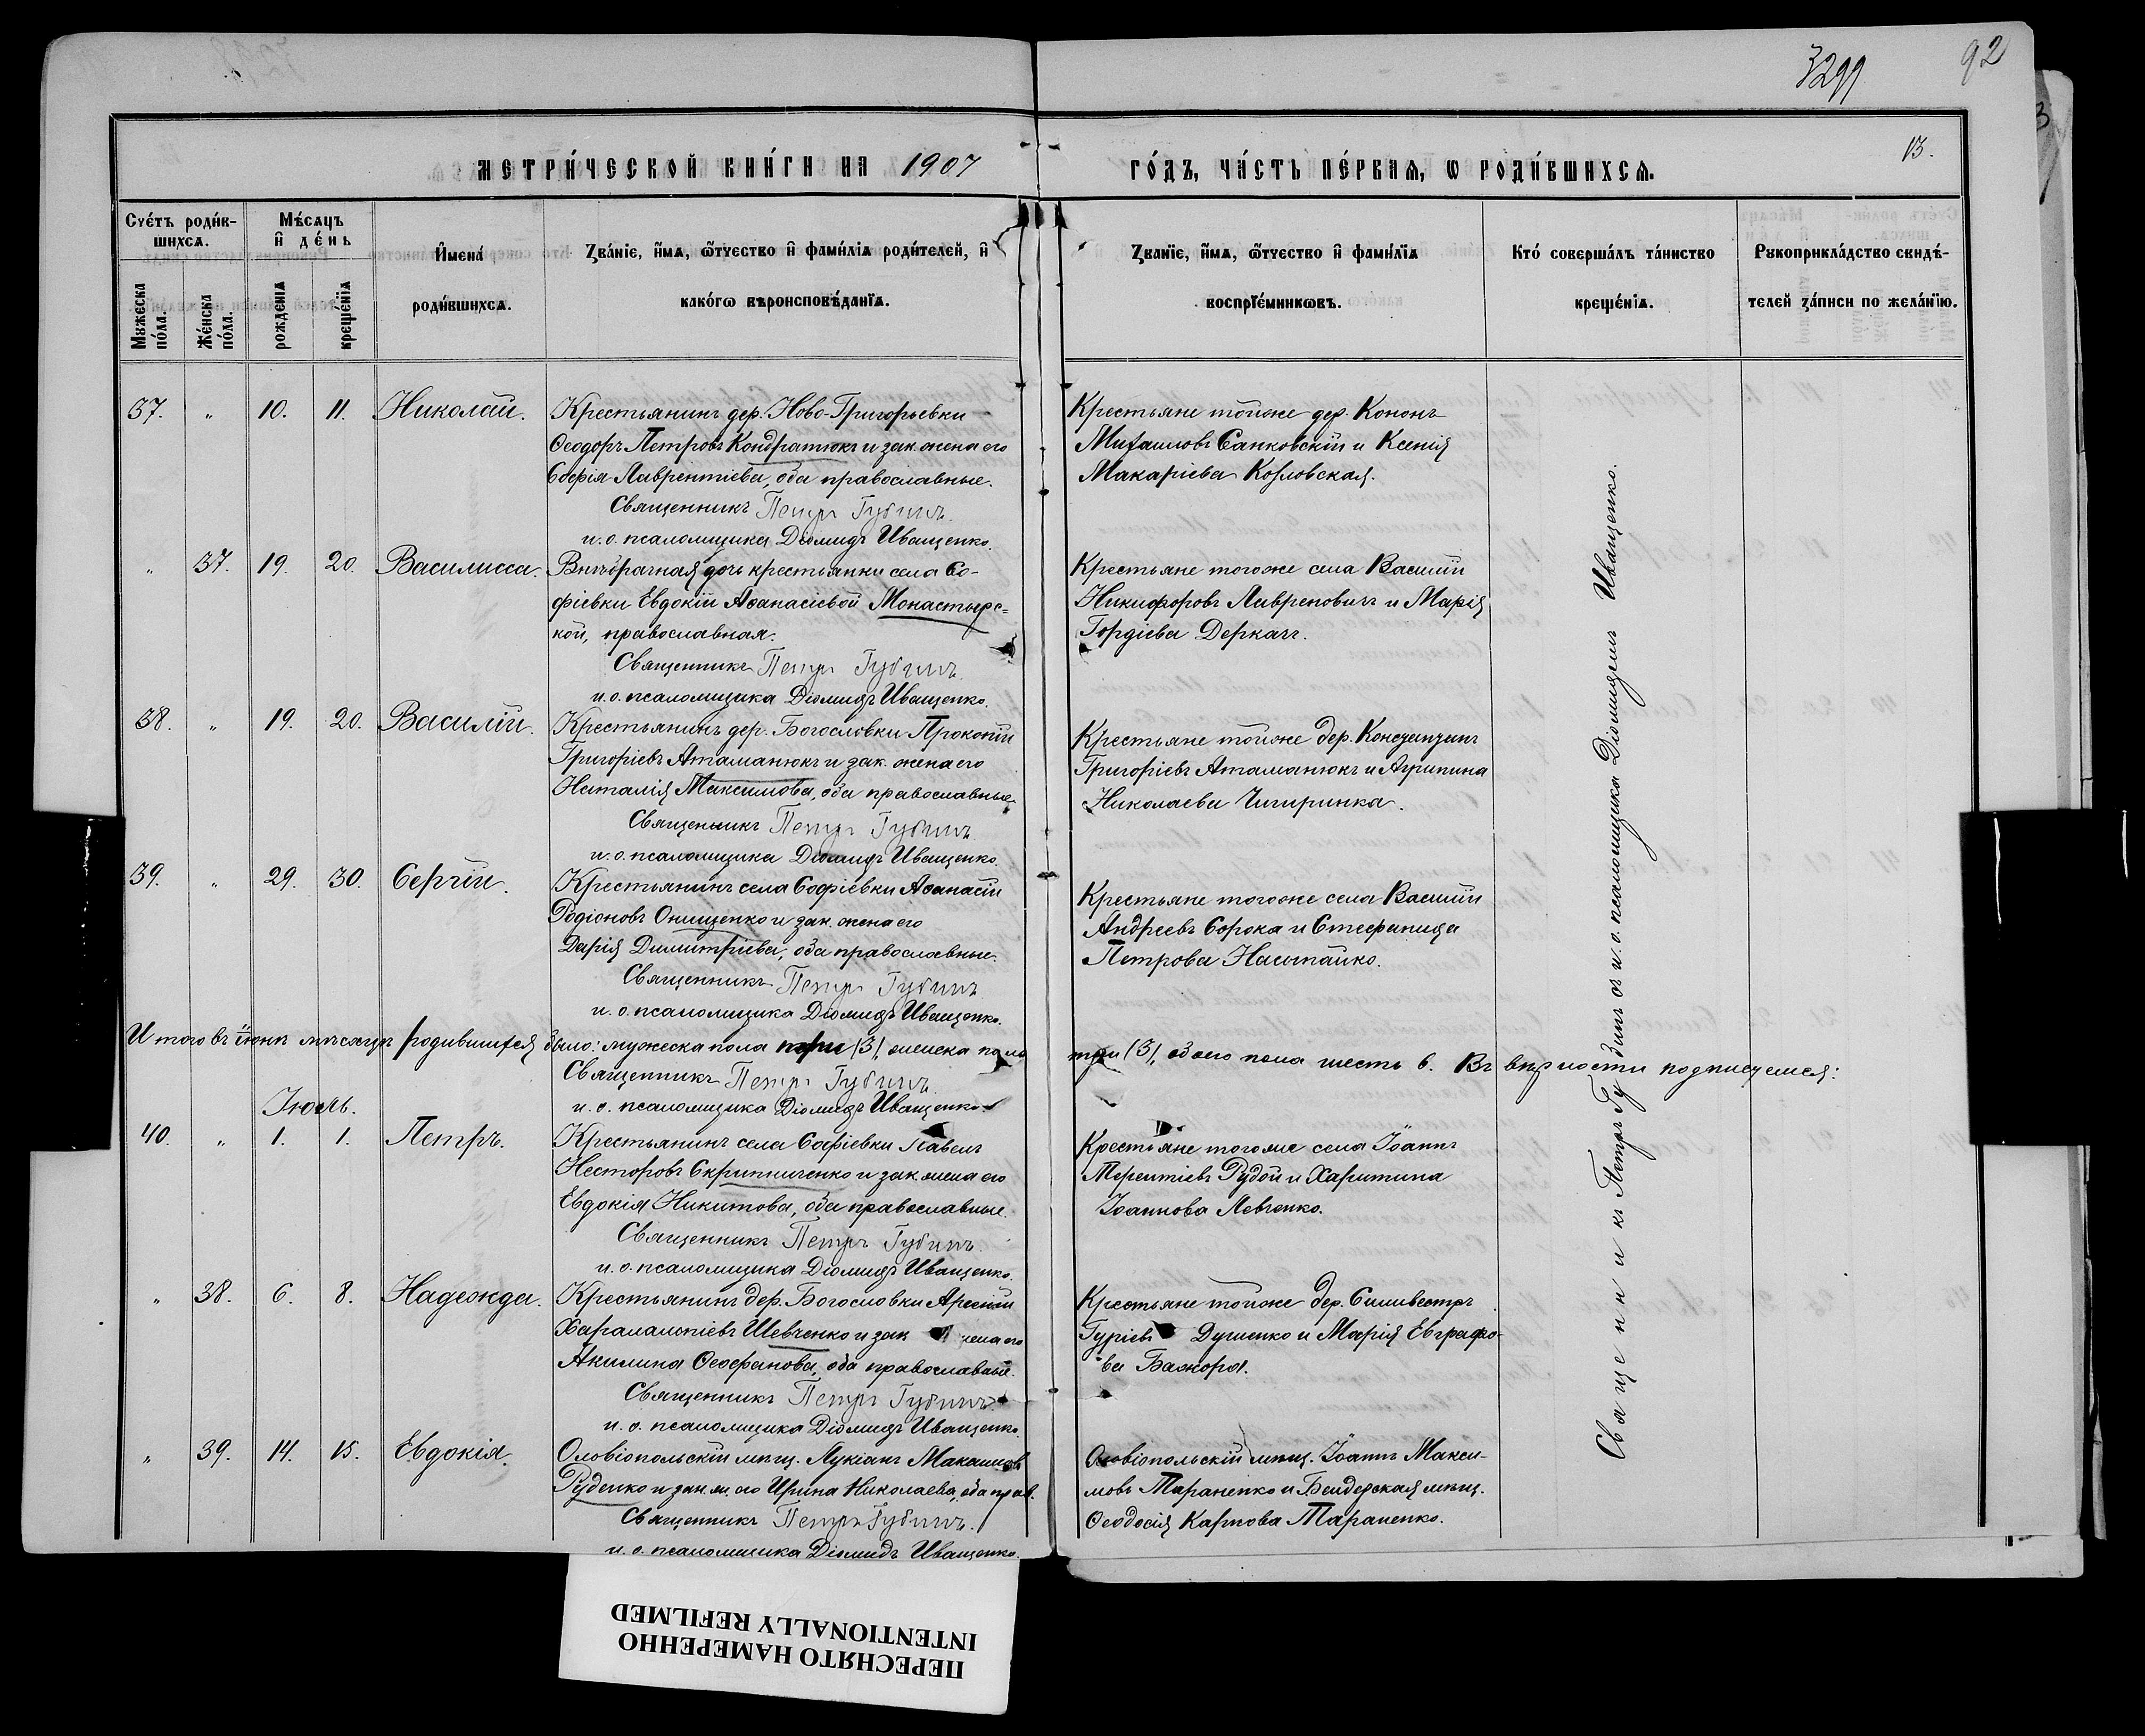 3299
92
13.
МЕТРИ́ЧЕСКОЙ КНИ́ГИ НА 1907 ГО́ДЪ, ЧА́СТЬ ПЕ́РВАѦ, Ѡ РОДИ́ВШИХСѦ.
Сче́тъ роди́в-
шихсѧ.
Мꙋжеска
по́ла.
Же́нска
по́ла.
Мѣ́сѧцъ
и҆ де́нь
рожде́нїѧ
креще́нїѧ
И҆мена́
роди́вшихсѧ.
Зва́нїе, и҆́мѧ, ѻ҆́тчество и҆ фами́лїѧ роди́телей, и҆
како́гѡ вѣроисповѣ́данїѧ.
Зва́нїе, и҆́мѧ, ѻ҆́тчество и҆ фами́лїѧ
воспрїе́мникѡвъ.
Кто́ соверша́лъ та́инство
креще́нїѧ.
Рꙋкоприкла́дство свидѣ́-
телей за́писи по жела́нїю.
37. " 10. 11. Николай.
Крестьянинъ дер. Ново-Григорьевки
Ѳеодоръ Петровъ Кондратюкъ и зак. жена его
Софія Лаврентіева, оба православные.
Священникъ Петръ Губинъ.
и. о. псаломщика Діомидъ Иващенко.
Крестьяне тойже дер. Кононъ
Михаиловъ Санковскій и Ксенія
Макаріева Козловская.
" 37. 19. 20. Василисса.
Внѣбрачная дочь крестьянки села Со-
фіевки Евдокіи Аѳанасіевой Монастырс-
кой, православная.
Священникъ Петръ Губинъ.
и. о. псаломщика Діомидъ Иващенко.
Крестьяне тогоже села Василій
Никифоровъ Лавреновичъ и Марія
Гордіева Деркачъ.
38. " 19. 20. Василій.
Крестьянинъ дер. Богословки Прокопій
Григоріевъ Атаманюкъ и зак. жена его
Наталія Максимова, оба православные.
Священникъ Петръ Губинъ
и. о. псаломщика Діомидъ Иващенко.
Крестьяне тойже дер.
Григоріевъ Атаманюкъ и Агрипина
Николаева Чигиринка.
39. " 29. 30. Сергій.
Крестьянинъ села Софіевки Аѳанасій
Родіоновъ Онищенко и зак. жена его
Дарія Димитріева, оба православные.
Священникъ Петръ Губинъ
и. о. псаломщика Діомидъ Иващенко.
Крестьяне тогоже села Василій
Андреевъ Сорока и Стефанида
Петрова Насыпайко.
Итого въ іюнѣ мѣсяцѣ родившихся было: мужеска пола три (3), женска пола три (3), обоего пола шесть 6. Въ вѣрности подписуемся:
Священникъ Петръ Губинъ.
и. о. псаломщика Діомидъ Иващенко.
Іюль.
40. " 1. 1. Петръ.
Крестьянинъ села Софіевки Павелъ
Несторовъ Скрипниченко и зак. жена его
Евдокія Никитова, оба православные.
Священникъ Петръ Губинъ.
и. о. псаломщика Діомидъ Иващенко.
Крестьяне тогоже села Іоаннъ
Терентіевъ Рудой и Харитина
Іоаннова Левченко.
" 38. 6. 8. Надежда.
Крестьянинъ дер. Богословки Арсеній
Харалампіевъ Шевченко и зак жена его
Акилина Ѳеофанова, оба православные.
Священникъ Петръ Губинъ.
и. о. псаломщика Діомидъ Иващенко.
Крестьяне тойже дер. Силивестръ
Гуріевъ Душенко и Марія Евграфо-
ва Бажора.
" 39. 14. 15. Евдокія.
Олѳвіопольскій мѣщ. Лукіанъ Максимовъ
Руденко и зак. ж. его Ирина Николаева, оба прав.
Священникъ Петръ Губинъ.
и. о. псаломщика Діомидъ Иващенко.
Ольвіопольскій мѣщ. Іоаннъ Макси-
мовъ Тараненко и Бендерская мѣщ.
Ѳеодосія Карпова Тараненко.
Священникъ Петръ Губинъ съ и. о. псаломщика Діомидомъ Иващенко.
ПЕРЕСНЯТО НАМЕРЕННО
INTENTIONALLY REFILMED